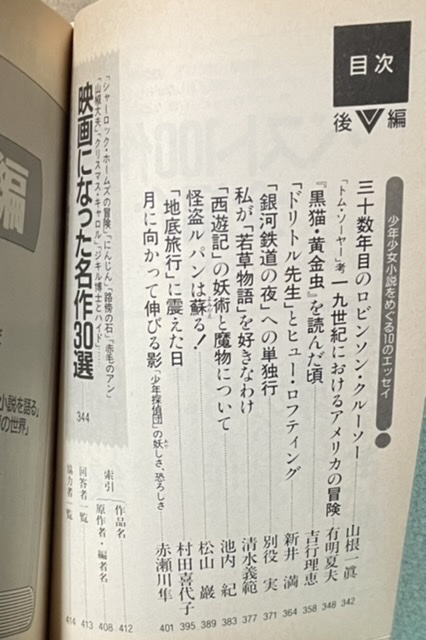 目次
後▽編
少年少女小説をめぐる10のエッセイ
三十数年目のロビンソン・クルーソー 山根一眞 342
「トム・ソーヤー」考 一九世紀におけるアメリカの冒険 有明夏夫 348
『黒猫・黄金虫』を読んだ頃 吉行理恵 358
「ドリトル先生」とヒュー・ロフティング 新井 満 364
「銀河鉄道の夜」への単独行 別役 実 371
私が「若草物語」を好きなわけ 清水義範 377
「西遊記」の妖術と魔物について 池内 紀 383
怪盗ルパンは蘇る! 松山 巖 389
「地底旅行」に震えた日 村田喜代子 395
月に向かって伸びる影 「少年探偵団」の妖しさ、恐ろしさ 赤瀬川 隼 401
「シャーロック・ホームズの冒険」「にんじん」「路傍の石」「赤毛のアン」
「山椒大夫」「クリスマス・キャロル」「ジキル博士とハイド」……
映画になった名作30選
344
索引 作品名 412
原作者・編者名 408
回答者一覧 413
協力者一覧 414
編
小説を語る」
の世界」